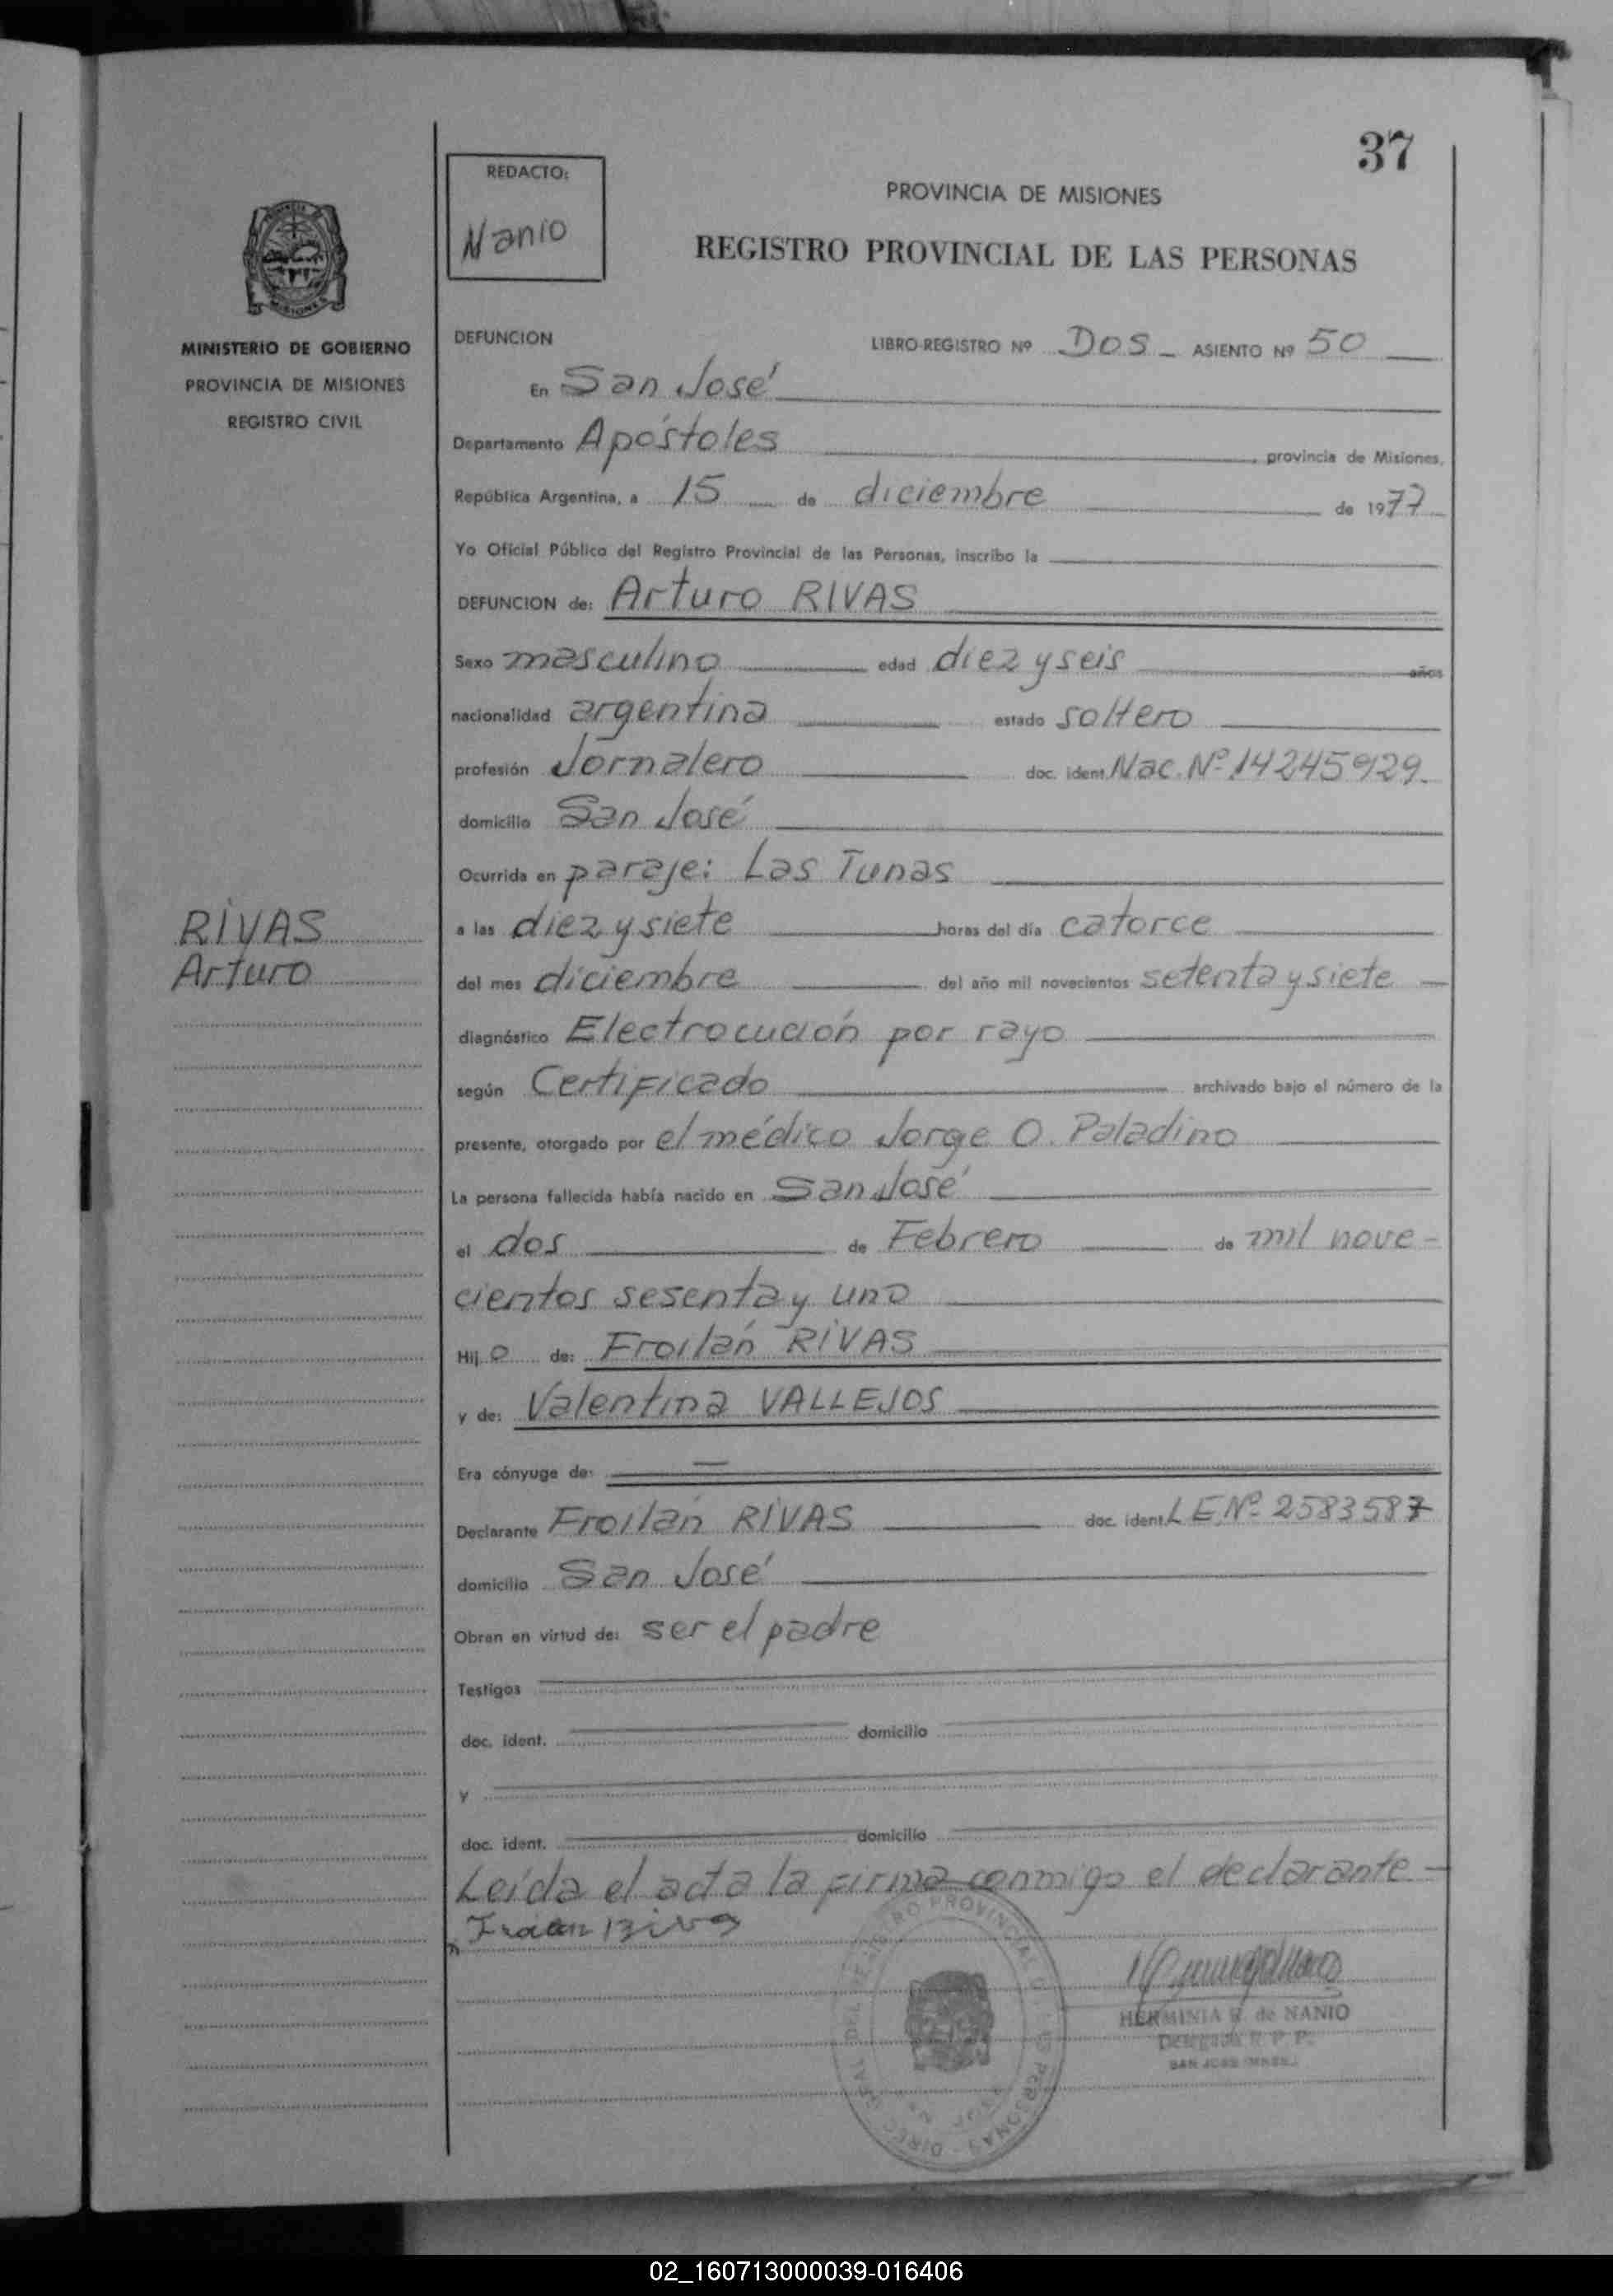 37
REDACTO:
Nanio
PROVINCIA DE MISIONES
REGISTRO PROVINCIAL DE LAS PERSONAS
MINISTERIO DE GOBIERNO
PROVINCIA DE MISIONES
REGISTRO CIVIL
DEFUNCION LIBRO-REGISTRO Nº DOS - ASIENTO Nº 50
En San José
Departamento Apóstoles, provincia de Misiones,
República Argentina, a 15 de diciembre de 1977
Yo Oficial Público del Registro Provincial de las Personas, inscribo la
DEFUNCION de: Arturo RIVAS
Sexo masculino edad diez y seis años
nacionalidad argentina estado soltero
profesión Jornalero doc. ident. Nac. Nº 14245929
domicilio San José
Ocurrida en paraje: Las Tunas
RIVAS
Arturo
a las diez y siete horas del día catorce
del mes diciembre del año mil novecientos setenta y siete
diagnóstico Electrocución por rayo
según Certificado archivado bajo el número de la
presente, otorgado por el médico Jorge O. Paladino
La persona fallecida había nacido en San José
el dos de Febrero de mil nove-
cientos sesenta y uno
Hijo de: Froilán RIVAS
y de: Valentina VALLEJOS
Era cónyuge de: —
Declarante Froilán RIVAS doc. ident. LE Nº 2583587
domicilio San José
Obran en virtud de: ser el padre
Testigos
doc. ident. domicilio
y
doc. ident. domicilio
Leída el acta la firma conmigo el declarante-
HERMINIA R. de NANIO
Delegada R. P. P.
02_160713000039-016406